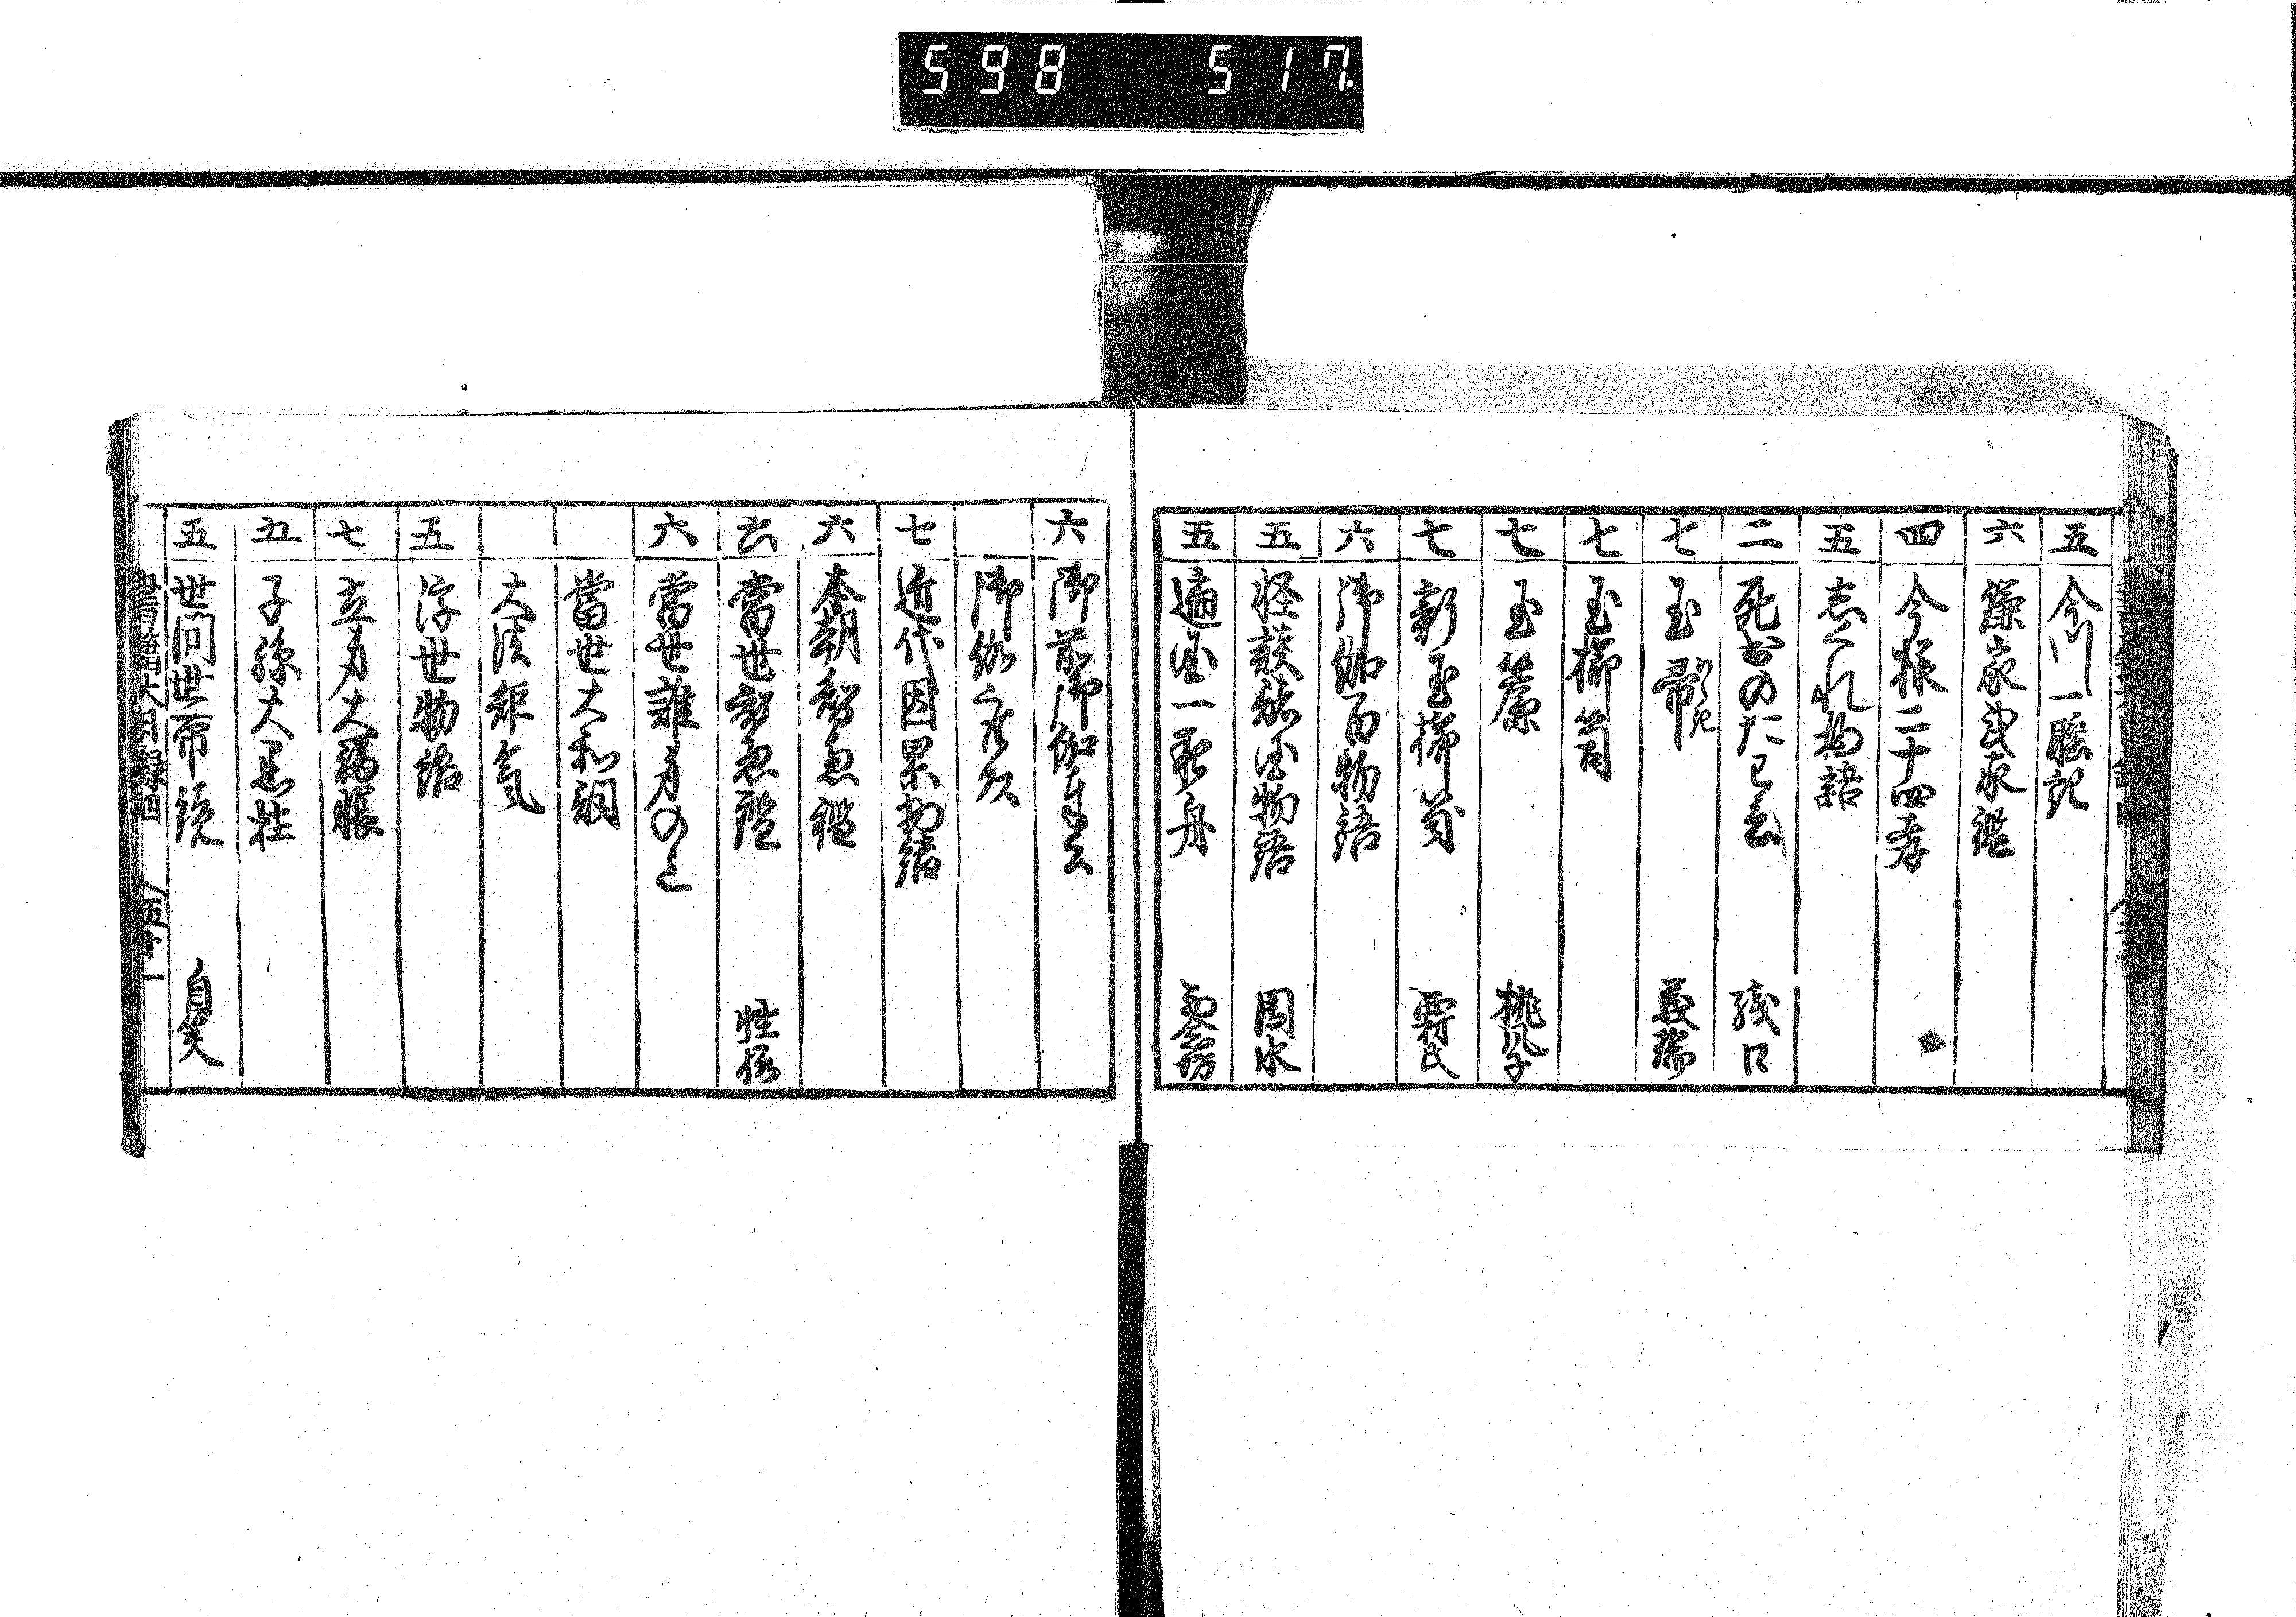 598 517
五 今川一睡記
六 鎌倉武家鑑
四 今様二十四孝
五 志くれ物語
二 死出のた己 残口
七 玉箒 義瑞
七 玉櫛笥
七 玉簾 桃風子
七 新玉櫛笥 要氏
六 御伽百物語
五 怪談諸国物語 周水
五 遍国一夜舟
六 御前御伽
御伽
七 近代因果物語
六 本朝智恵鑑
六 當世智恵鑑 性極
六 當世誰身のと
當世大和詞
大法癖気
五 浮世物語
七 立身大福帳
五 子孫大黒柱
五 世間世帯 自笑
書籍大目録四 五十一